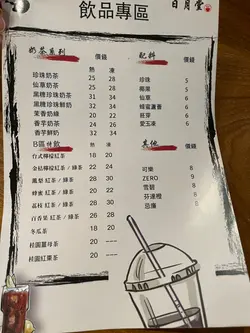 飲品專區
日月堂
奶茶系列 價錢
熱 凍
珍珠奶茶 25 28
仙草奶茶 25 28
黑糖珍珠奶茶 25 28
黑糖珍珠鮮奶 32 34
茉香奶綠 20 22
香芋奶茶 24 26
香芋鮮奶 32 34
配料 價錢
珍珠 5
椰果 5
仙草 5
蜂蜜蘆薈 5
蒟蒻 5
愛玉凍 5
B區特飲 熱 凍
台式檸檬紅茶 18 20
金桔檸檬紅茶 / 綠茶 22 24
鳳梨 紅茶 / 綠茶 26 28
蜂蜜 紅茶 / 綠茶 22 24
荔枝 紅茶 / 綠茶 26 28
百香果 紅茶 / 綠茶 26 28
冬瓜茶 18 20
桂圓薑母茶 20 ----
桂圓紅棗茶 20 ----
其他 價錢
可樂 8
ZERO 9
雪碧 8
芬達橙 8
忌廉 8